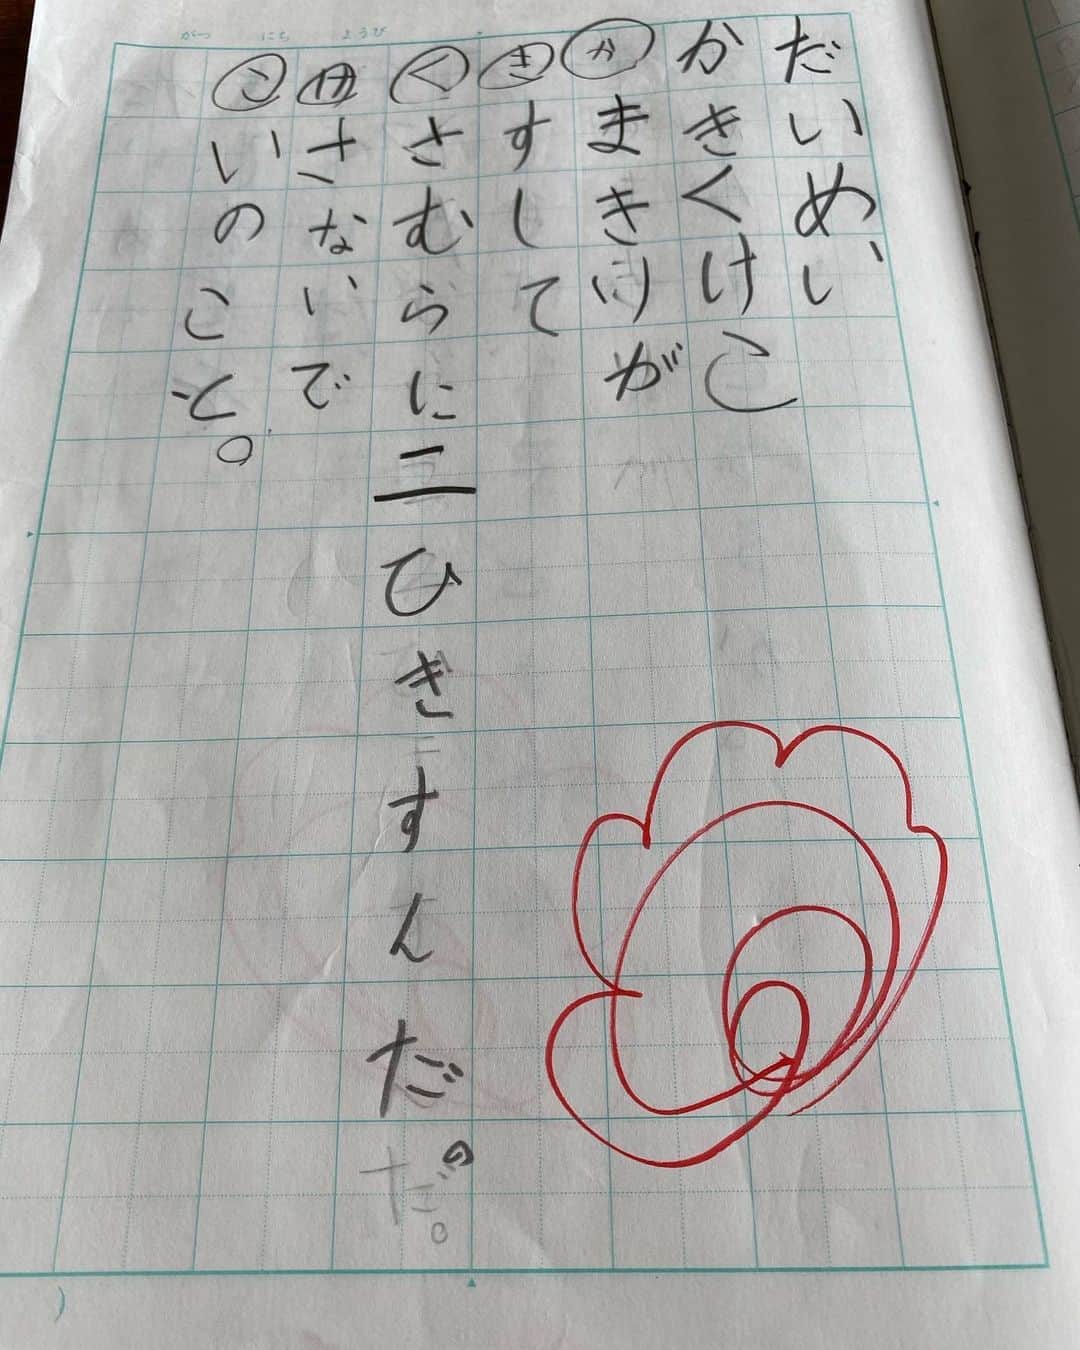 がつ にち ようび
だいめい
かきくけこ
かまきりが
きすして
くさむらに二ひきすんだの。
けさないで
こいのこと。